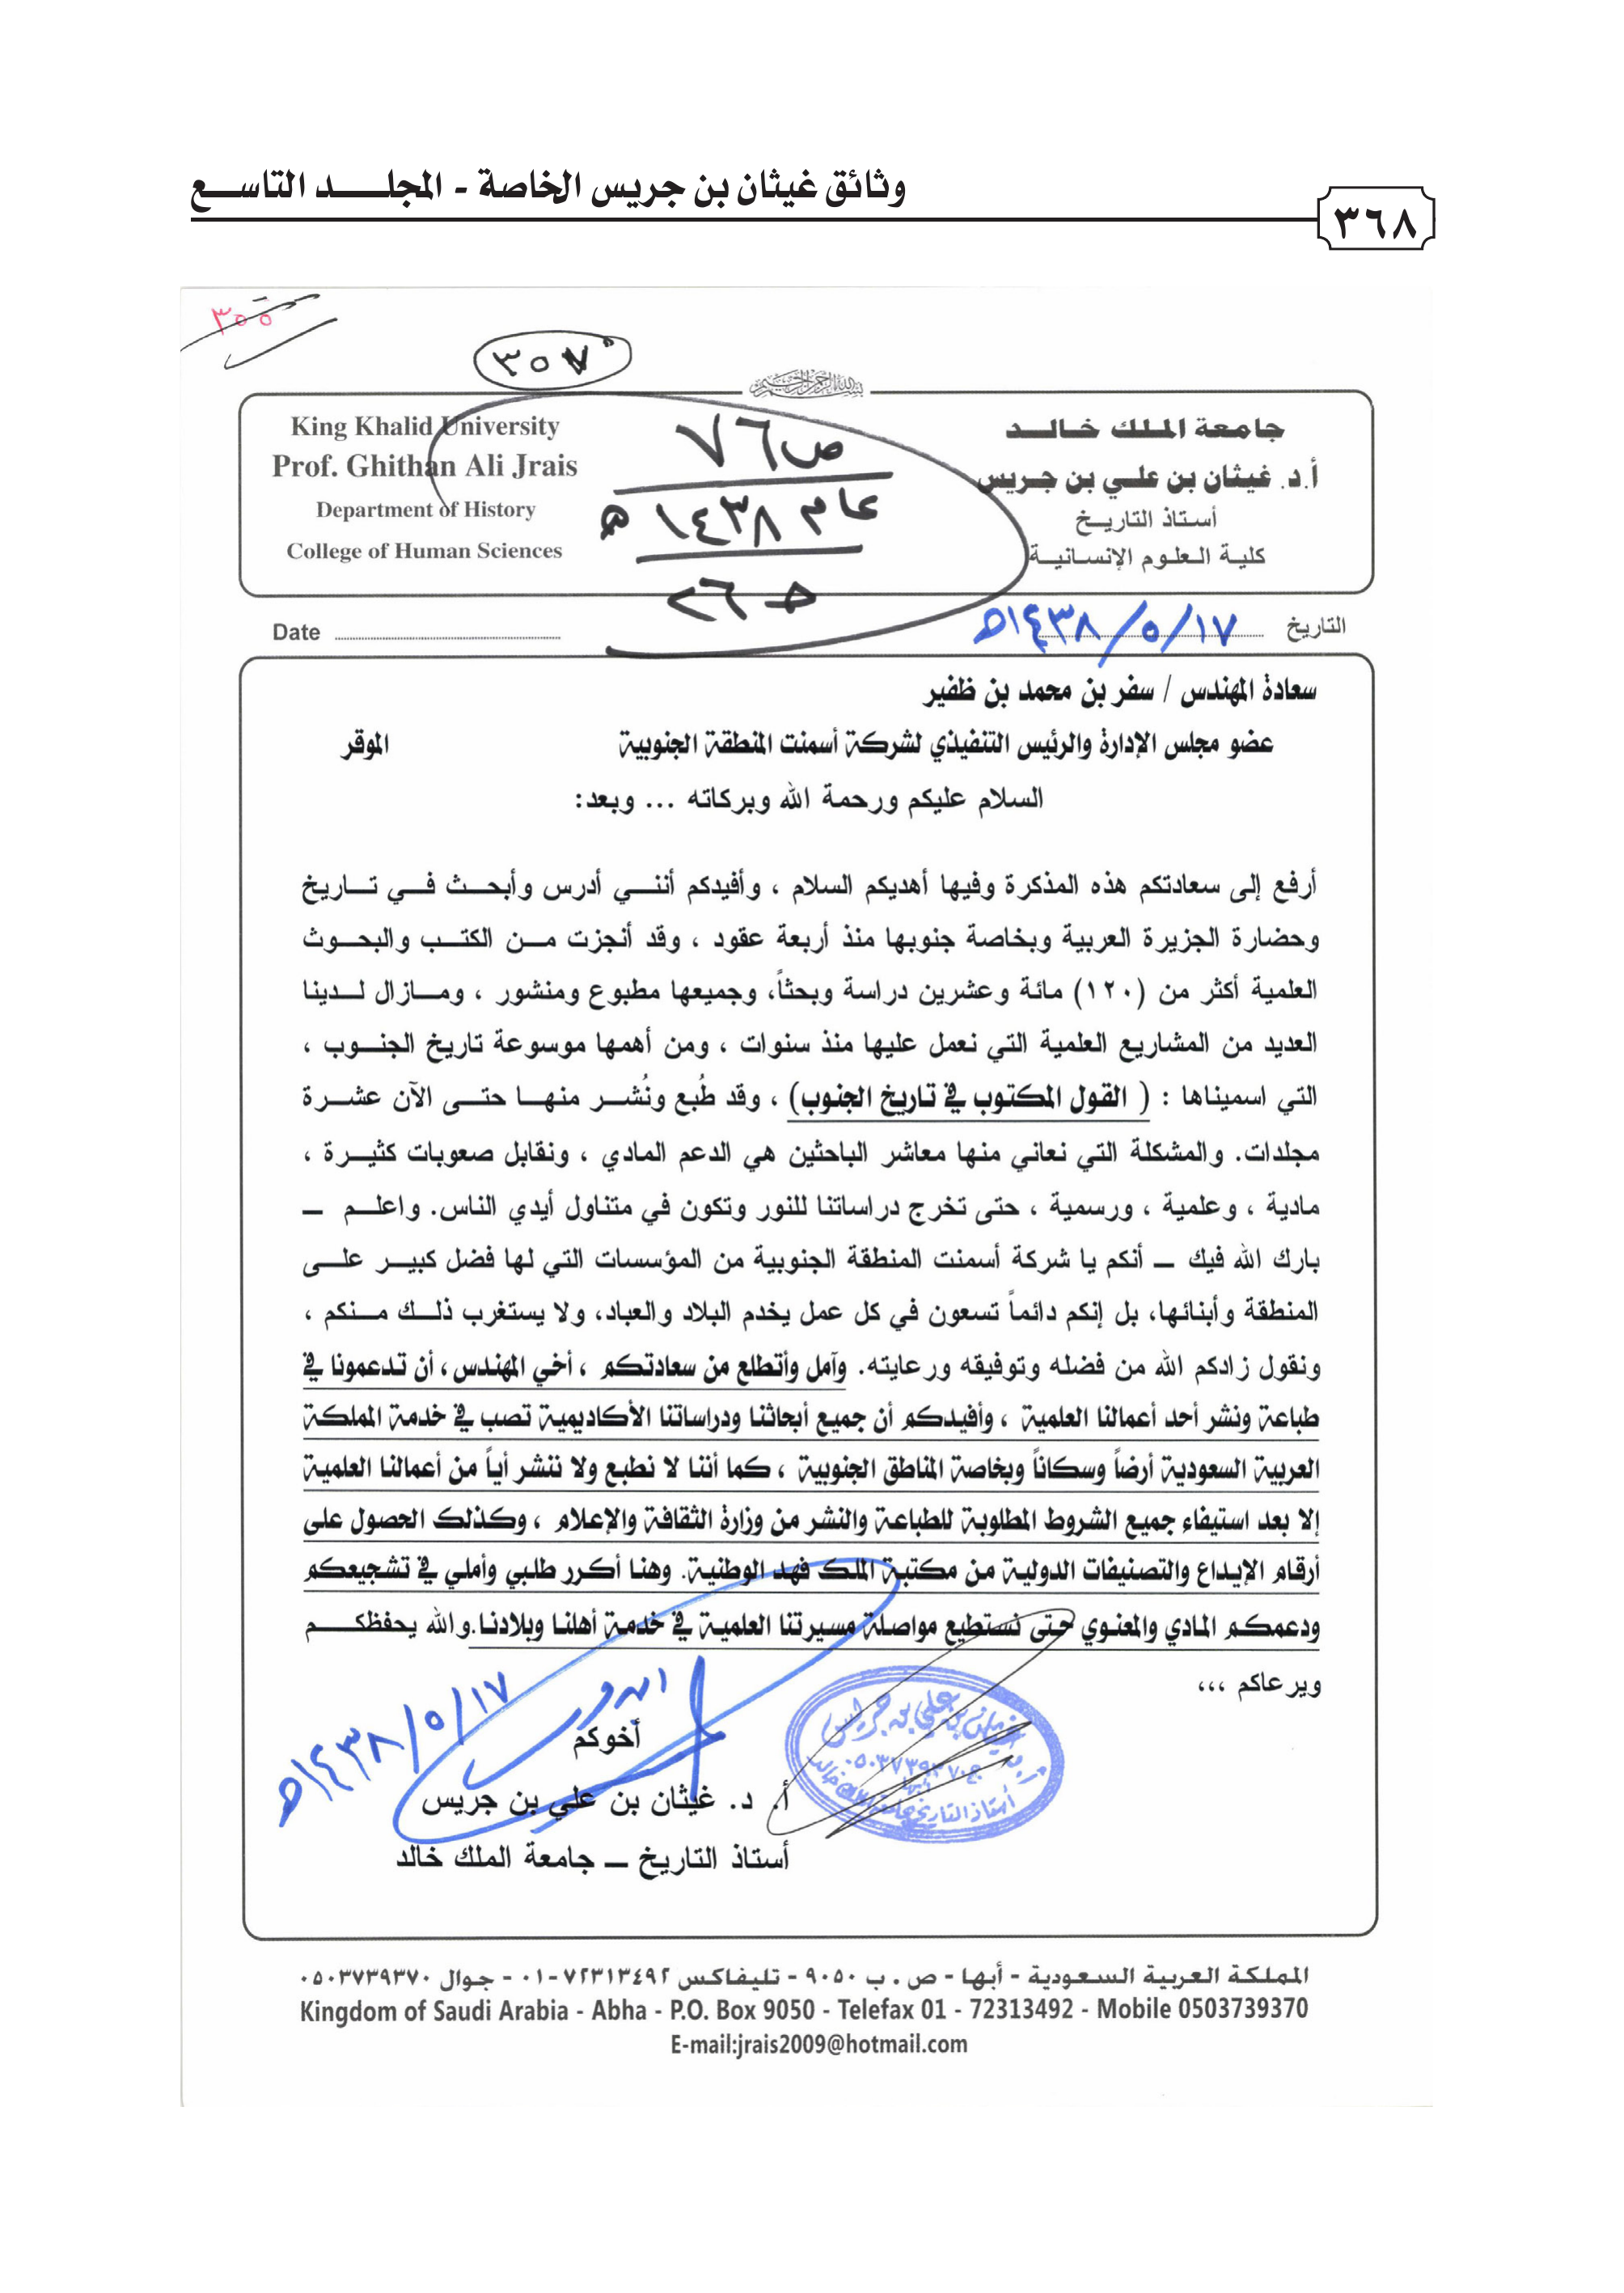 وثائق غيثان بن جريس الخاصة - المجلد التاسع
٣٦٨
٣٥٥
٣٥٧
بسم الله الرحمن الرحيم
جامعة الملك خالد
أ.د. غيثان بن علي بن جريس
أستاذ التاريخ
كلية العلوم الإنسانية
King Khalid University
Prof. Ghithan Ali Jrais
Department of History
College of Human Sciences
ص٧٦
عام ١٤٣٨هـ
حـ٢٦
التاريخ ١٤٣٨/٥/١٧هـ
Date
سعادة المهندس / سفر بن محمد بن ظفير
عضو مجلس الإدارة والرئيس التنفيذي لشركة أسمنت المنطقة الجنوبية الموقر
السلام عليكم ورحمة الله وبركاته ... وبعد:
أرفع إلى سعادتكم هذه المذكرة وفيها أهديكم السلام ، وأفيدكم أنني أدرس وأبحث في تاريخ
وحضارة الجزيرة العربية وبخاصة جنوبها منذ أربعة عقود ، وقد أنجزت من الكتب والبحوث
العلمية أكثر من (١٢٠) مائة وعشرين دراسة وبحثاً، وجميعها مطبوع ومنشور ، ومازال لدينا
العديد من المشاريع العلمية التي نعمل عليها منذ سنوات ، ومن أهمها موسوعة تاريخ الجنوب ،
التي اسميناها : ( القول المكتوب في تاريخ الجنوب) ، وقد طُبع ونُشر منها حتى الآن عشرة
مجلدات. والمشكلة التي نعاني منها معاشر الباحثين هي الدعم المادي ، ونقابل صعوبات كثيرة ،
مادية ، وعلمية ، ورسمية ، حتى تخرج دراساتنا للنور وتكون في متناول أيدي الناس. واعلم –
بارك الله فيك – أنكم يا شركة أسمنت المنطقة الجنوبية من المؤسسات التي لها فضل كبير على
المنطقة وأبنائها، بل إنكم دائماً تسعون في كل عمل يخدم البلاد والعباد، ولا يستغرب ذلك منكم ،
ونقول زادكم الله من فضله وتوفيقه ورعايته. وآمل وأتطلع من سعادتكم ، أخي المهندس، أن تدعمونا في
طباعة ونشر أحد أعمالنا العلمية ، وأفيدكم أن جميع أبحاثنا ودراساتنا الأكاديمية تصب في خدمة المملكة
العربية السعودية أرضاً وسكاناً وبخاصة المناطق الجنوبية ، كما أننا لا نطبع ولا ننشر أياً من أعمالنا العلمية
إلا بعد استيفاء جميع الشروط المطلوبة للطباعة والنشر من وزارة الثقافة والإعلام ، وكذلك الحصول على
أرقام الإيداع والتصنيفات الدولية من مكتبة الملك فهد الوطنية. وهنا أكرر طلبي وأملي في تشجيعكم
ودعمكم المادي والمعنوي حتى نستطيع مواصلة مسيرتنا العلمية في خدمة أهلنا وبلادنا.والله يحفظكم
ويرعاكم ،،،
أخوكم
أ. د. غيثان بن علي بن جريس
أستاذ التاريخ – جامعة الملك خالد
١٤٣٨/٥/١٧هـ
غيثان بن علي بن جريس
أستاذ التاريخ
المملكة العربية السعودية - أبها - ص . ب ٩٠٥٠ - تليفاكس ٧٢٣١٣٤٩٢-٠١ - جوال ٠٥٠٣٧٣٩٣٧٠
Kingdom of Saudi Arabia - Abha - P.O. Box 9050 - Telefax 01 - 72313492 - Mobile 0503739370
E-mail:jrais2009@hotmail.com